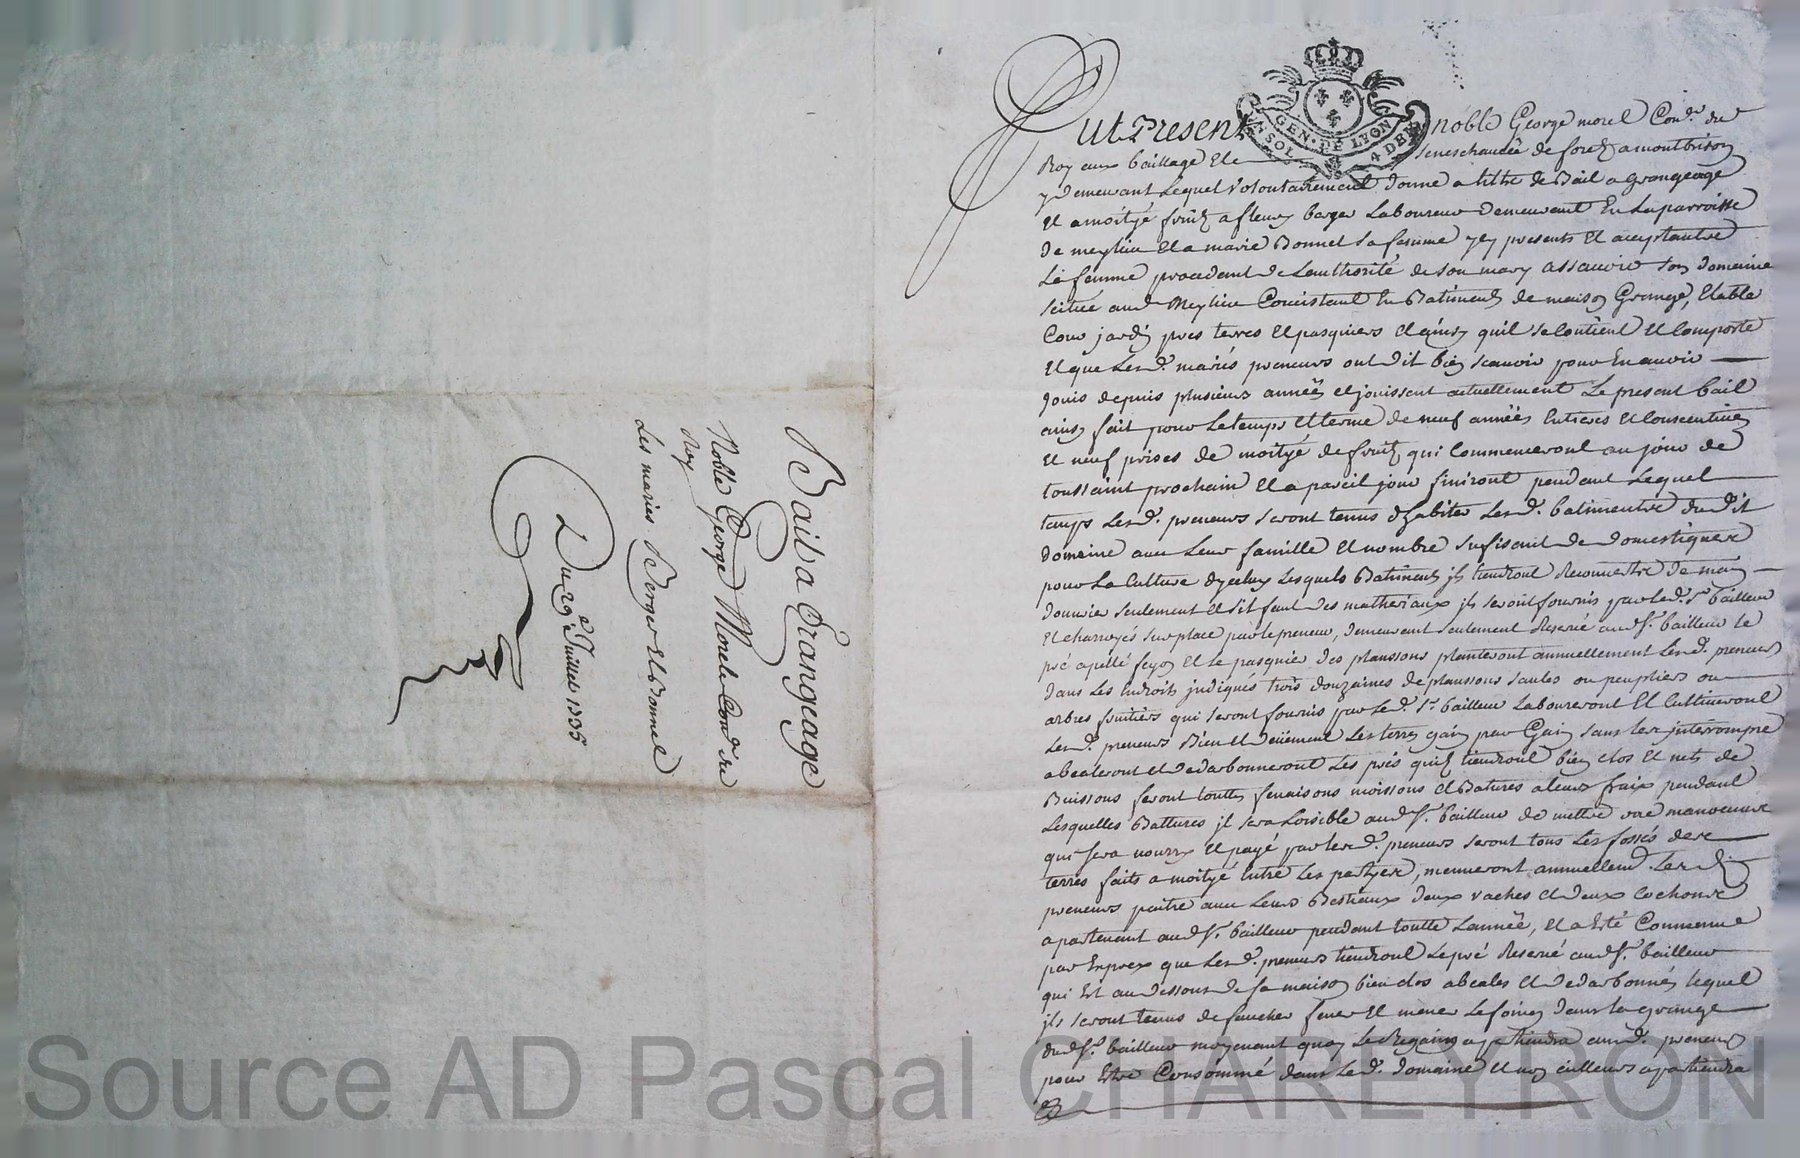 Bail a Grangeage
Noble George Morel Cons.er du
Roy
Les mariés Berger et Bonnel
Du 29.e Juillet 1735
GEN. DE LYON
UN SOL 4 DEN
Fut Present noble George morel Cons.er du
Roy aux baillage et seneschaucée de forez a montbrison
y demeurant Lequel volontairement donne a tiltre de Bail a grangeage
et a moityé fruits a fleury berger Laboureur demeurant En La parroisse
de meylieu et a marie Bonnel sa femme icy presents et aceptantz
La femme procedant de Lauthorité de son mary assavoir son domaine
scitué aud. Meylieu Consistant En Batiments de maison Grange, Etable
Cour jardin prés terres et pasquiers et ainsy quil se Contient et Comporte
et que Lesd. mariés preneurs ont dit bien scavoir pour En avoir
Jouis depuis plusieurs années et jouissent actuellement Le present bail
ainsy fait pour Le temps et terme de neuf années Entieres et Consecutives
et neuf prises de moityé de fruits qui Commenceront au jour de
toussaint prochain et a pareil jour finiront pendant Lequel
temps Lesd. preneurs seront tenus d'habiter Lesd. batimentz dudit
domaine avec Leur famille et nombre sufisant de domestiques
pour La Culture dyceluy Lesquels Batiments ils tiendront de main
douvrier seulement et s'il faut des matheriaux ils seront fournis par Led. Sr. bailleur
et charroyés sur place par le preneur, demeurant seulement Reservé aud. Sr. bailleur le
pré apellé feyon et Le pasquier des planssons planteront annuellement Lesd. preneurs
dans Les Endroits indiqués trois douzaines de planssons saules ou peupliers ou
arbres fruitiers qui seront fournis par Led. Sr. bailleur Laboureront et Cultiveront
Lesd. preneurs Bien et deüement Les terres gain par Gain sans Les interrompre
abealeront et dedarbonneront Les prés quils tiendront bien clos et nets de
Buissons feront touttes fenaisons moissons et Batures a leurs fraix pendant
Lesquelles Battures il sera Loisible aud. Sr. bailleur de mettre une manoeuvre
qui sera nourry et payé par Lesd. preneurs seront tous Les fossés desd.
terres faits a moityé Entre Les partyes, meneront annuellem.t Lesd.
preneurs paitre avec Leurs Bestiaux deux vaches et deux cochons
apartenant aud. Sr. bailleur pendant toutte Lannée, et a Eté Convenu
par Exprex que Lesd. preneurs tiendront Le pré Reservé aud. Sr. bailleur
qui Est au dessous de sa maison bien clos abealés et dedarbonnés lequel
ils seront tenus de faucher fener et mener Le foin dans La grange
dud. Sr. bailleur moyenant quoy Le Regain apartiendra aud. preneurs
pour Etre Consommé dans Led. domaine et non ailleurs apartiendra
Source AD Pascal CHAREYRON